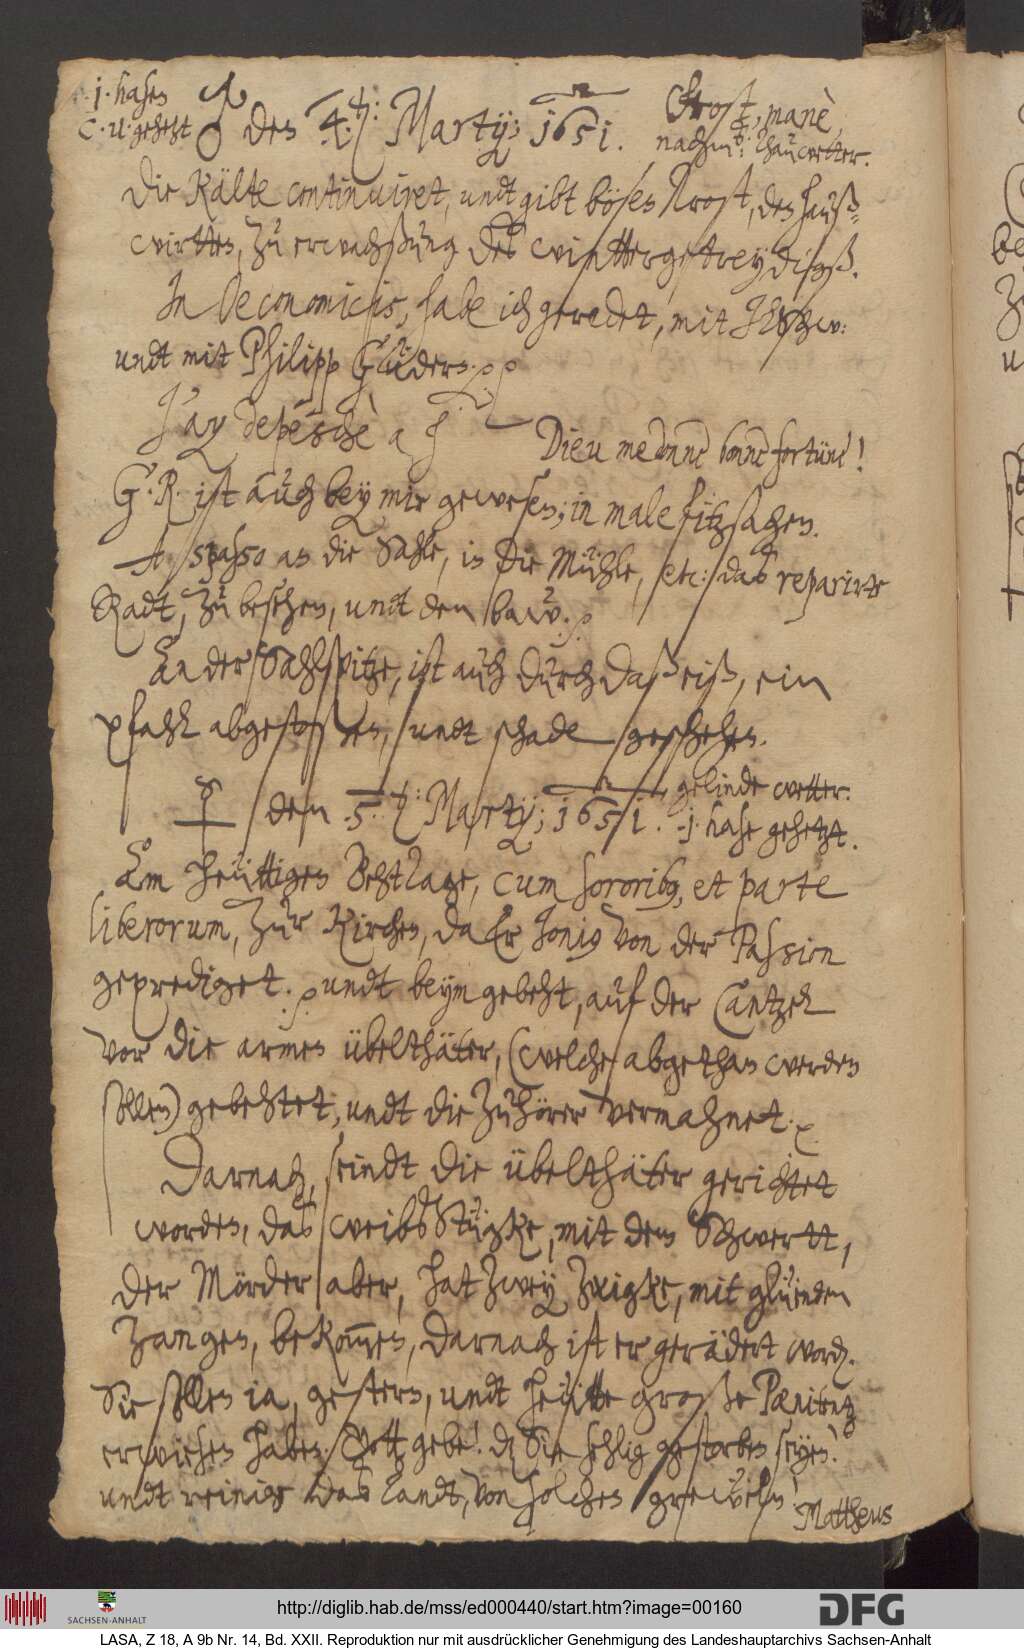 .j. hasen
C. u. gehezt
♂ den 4.t: Martij; 1651.
Frost, manè,
nachm: thauwetter.
Die Kälte continuiret, undt gibt böses Frost, des hauß-
wirttes, zu erwachßung des winttergetreydigß.
In Oeconomicis, habe ich geredet, mit
undt mit Philipp Güder. p p
J'ay depeschè a
Dieu me donne bonne fortune!
G. R. ist auch bey mir gewesen, in malefitzsachen.
A spasso an die Sahle, in die Mühle, etc: das reparirte
Radt, zu besehen, undt den baw. p
An der Sahlspitze, ist auch durch daß eiß, ein
pfahl abgestoßen, undt schade geschehen.
☿ den .5. t: Martij; 1651.
gelinde wetter.
.j. hase gehetzt.
Am heüttigen Behttage, cum sororibus, et parte
liberorum, zur Kirchen, da Er Jonius von der Passion
geprediget. p undt beym gebeht, auf der Cantzel
vor die armen übelthäter, (welche abgethan werden
sollen) gebehtet, undt die zuhörer vermahnet. p
Darnach, seindt die übelthäter gerichtet
worden, das weibsstücke, mit dem Schwertt,
der Mörder aber, hat zwey zwicke, mit glüenden
zangen, bekommen, darnach ist er gerädert word.
Sie sollen ia, gestern, undt heütte große Pœnitentz
erwiesen haben. Gott gebe! dz Sie sehlig gestorben seyen!
undt reinige das Landt, von solchen greweln!
Mattheus
http://diglib.hab.de/mss/ed000440/start.htm?image=00160
SACHSEN-ANHALT
DFG
LASA, Z 18, A 9b Nr. 14, Bd. XXII. Reproduktion nur mit ausdrücklicher Genehmigung des Landeshauptarchivs Sachsen-Anhalt